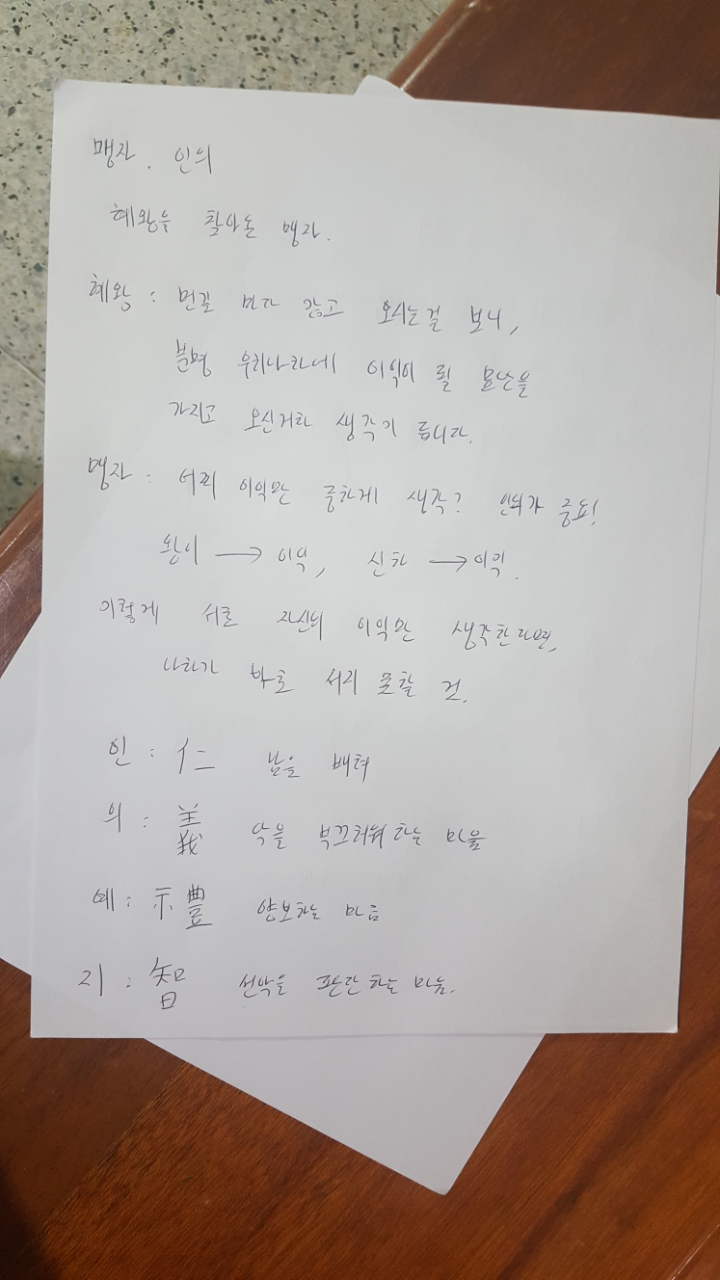 맹자. 인의
혜왕을 찾아온 맹자.
혜왕 : 먼길 마다 않고 오시는걸 보니,
분명 우리나라에 이익이 될 묘안을
가지고 오신거라 생각이 듭니다.
맹자 : 어찌 이익만 중하게 생각? 인의가 중요!
왕이 → 이익, 신하 → 이익.
이렇게 서로 자신의 이익만 생각한다면,
나라가 바로 서지 못할 것.
인 : 仁 남을 배려
의 : 義 악을 부끄러워하는 마음
예 : 禮 양보하는 마음
지 : 智 선악을 판단하는 마음.